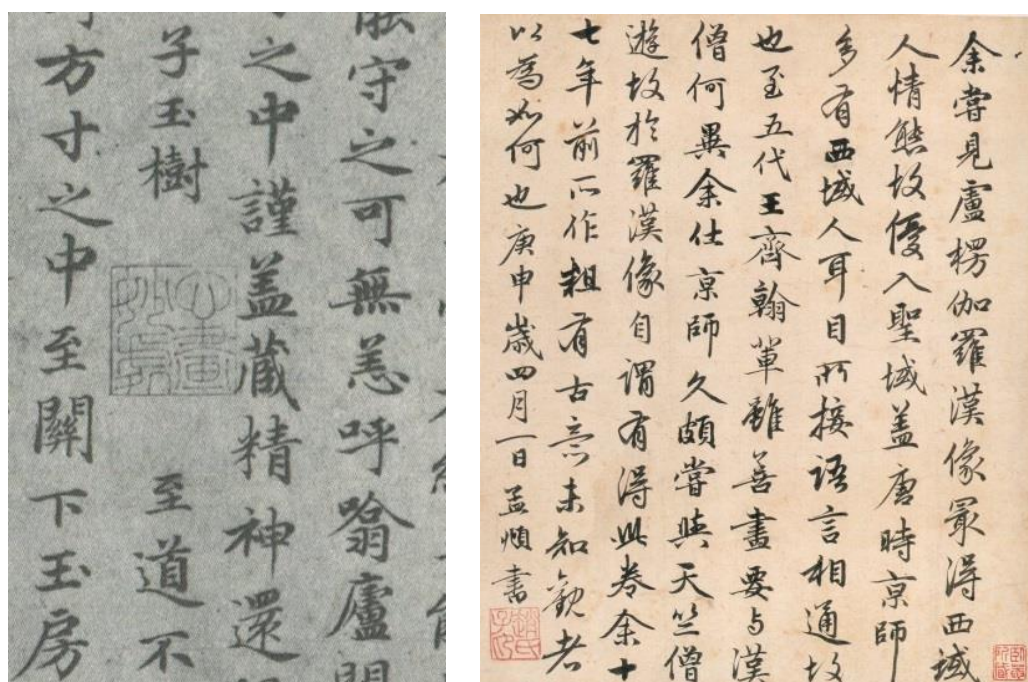 能守之可無恙呼噏廬間
之中謹盖蔵精神還
子玉樹 至道不
方寸之中至關下玉房
余嘗見盧楞伽羅漢像㝡得西域
人情態故優入聖域盖唐時京師
多有西域人耳目所接語言相通故
也至五代王齊翰軰雖善畫要与漢
僧何異余仕京師久頗嘗與天竺僧
遊故於羅漢像自謂有得此卷余十
七年前所作粗有古意未知觀者
以為如何也庚申歲四月一日孟頫書